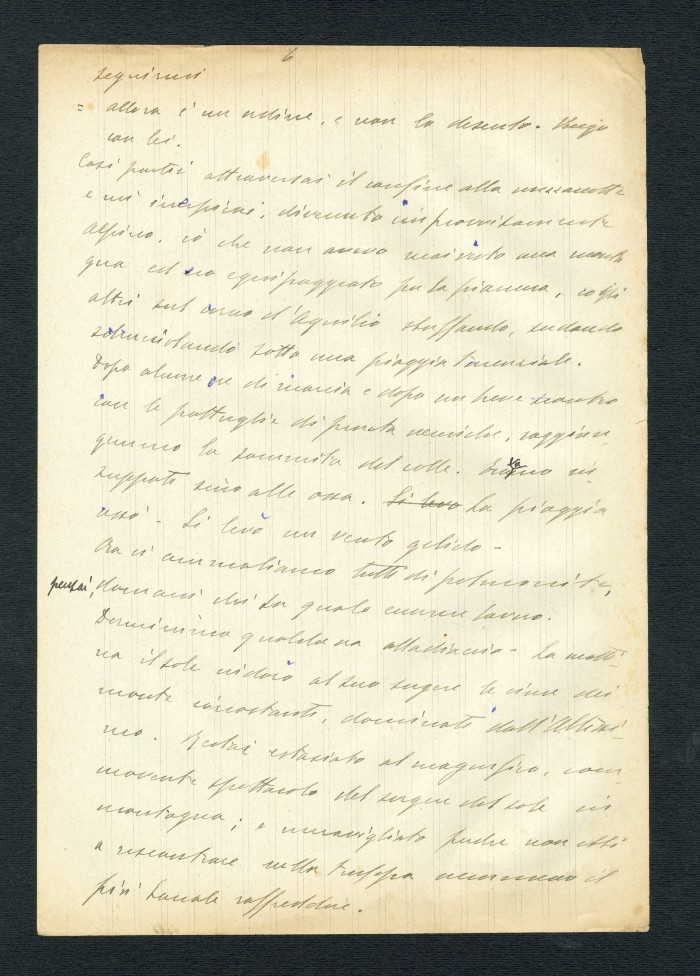 6
seguirmi
= allora è un ordine, e non la discuto. Vengo
con lei.
Così partii attraversai il confine alla mezzanotte
e mi inerpicai, divenuto improvvisamente
alpino, io che non avevo mai visto una monta
gna ed ero equipaggiato per la pianura, cogli
altri sul corno d'Aquilio sbuffando, sudando
sdrucciolando sotto una pioggia torrenziale.
Dopo alcune ore di marcia e dopo un breve scontro
con le pattuglie di punta nemiche, raggiun
gemmo la sommità del colle. in
zuppati sino alle ossa. Si levò La pioggia
cessò - Si levò un vento gelido -
Ora ci ammaliamo tutti di polmonite,
pensai, domani chi sa quale enorme
Dormimmo qualche ora all'addiaccio - La matti
na il sole indorò al suo sorgere le cime dei
monti circostanti, dominati dall'Altissi
mo. Restai estasiato al magnifico, com
movente spettacolo del sorgere del sole in
montagna; e meravigliato perché non ebbi
a riscontrare nella truppa nemmeno il
più banale raffreddore.